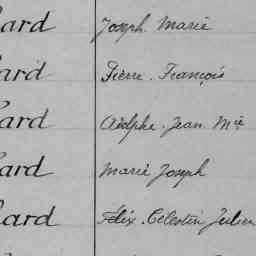 ard Joseph. Marie
ard Pierre. François
ard Adolphe. Jean. Mie
ard Marie Joseph
ard Félix. Célestin Julien